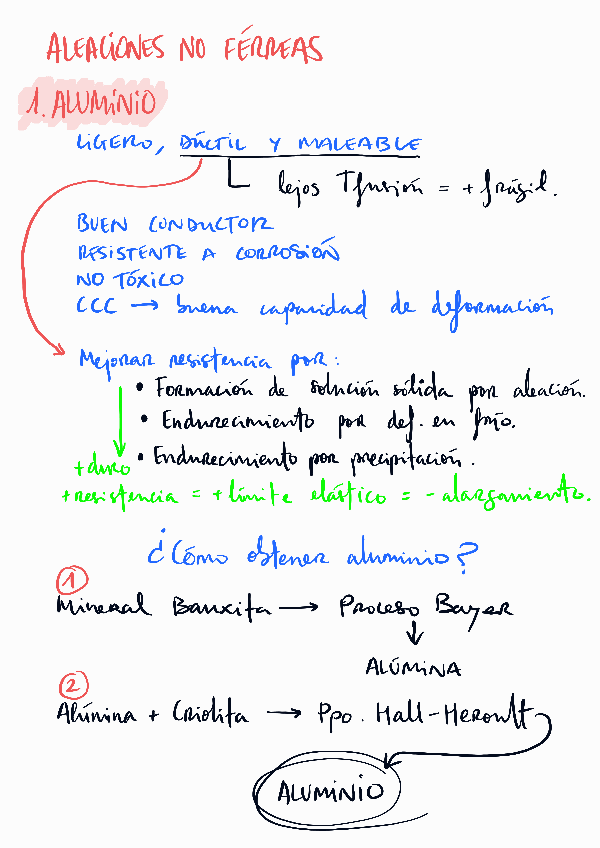 ALEACIONES NO FÉRREAS
1. ALUMINIO
LIGERO, DÚCTIL Y MALEABLE
lejos Tfusión = + frágil.
BUEN CONDUCTOR
RESISTENTE A CORROSIÓN
NO TÓXICO
CCC → buena capacidad de deformación
Mejorar resistencia por:
• Formación de solución sólida por aleación.
• Endurecimiento por def. en frío.
• Endurecimiento por precipitación.
+ duro
+ resistencia = + límite elástico = - alargamiento.
¿Cómo obtener aluminio?
1
Mineral Bauxita → Proceso Bayer
↓
ALÚMINA
2
Alúmina + Criolita → Ppo. Hall-Heroult
ALUMINIO